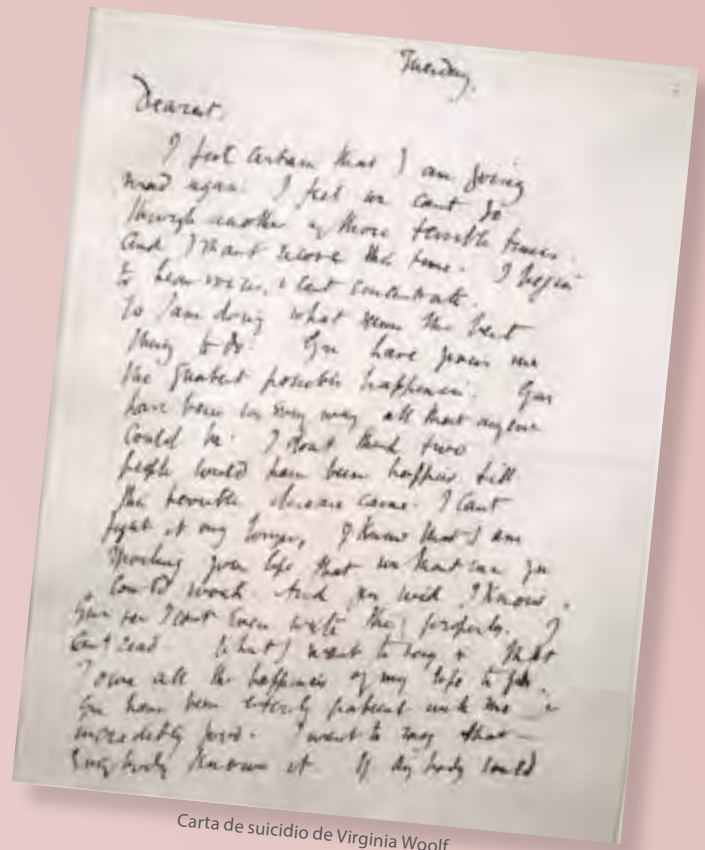 Tuesday.
Dearest,
I feel certain that I am going
mad again: I feel we cant go
through another of those terrible times.
And I shant recover this time. I begin
to hear voices, & cant concentrate.
So I am doing what seems the best
thing to do. You have given me
the greatest possible happiness. You
have been in every way all that anyone
could be. I dont think two
people could have been happier till
this terrible disease came. I cant
fight it any longer, I know that I am
spoiling your life, that without me you
could work. And you will I know.
You see I cant even write this properly. I
cant read. What I want to say is that
I owe all the happiness of my life to you.
You have been entirely patient with me &
incredibly good. I want to say that —
everybody knows it. If anybody could
Carta de suicidio de Virginia Woolf